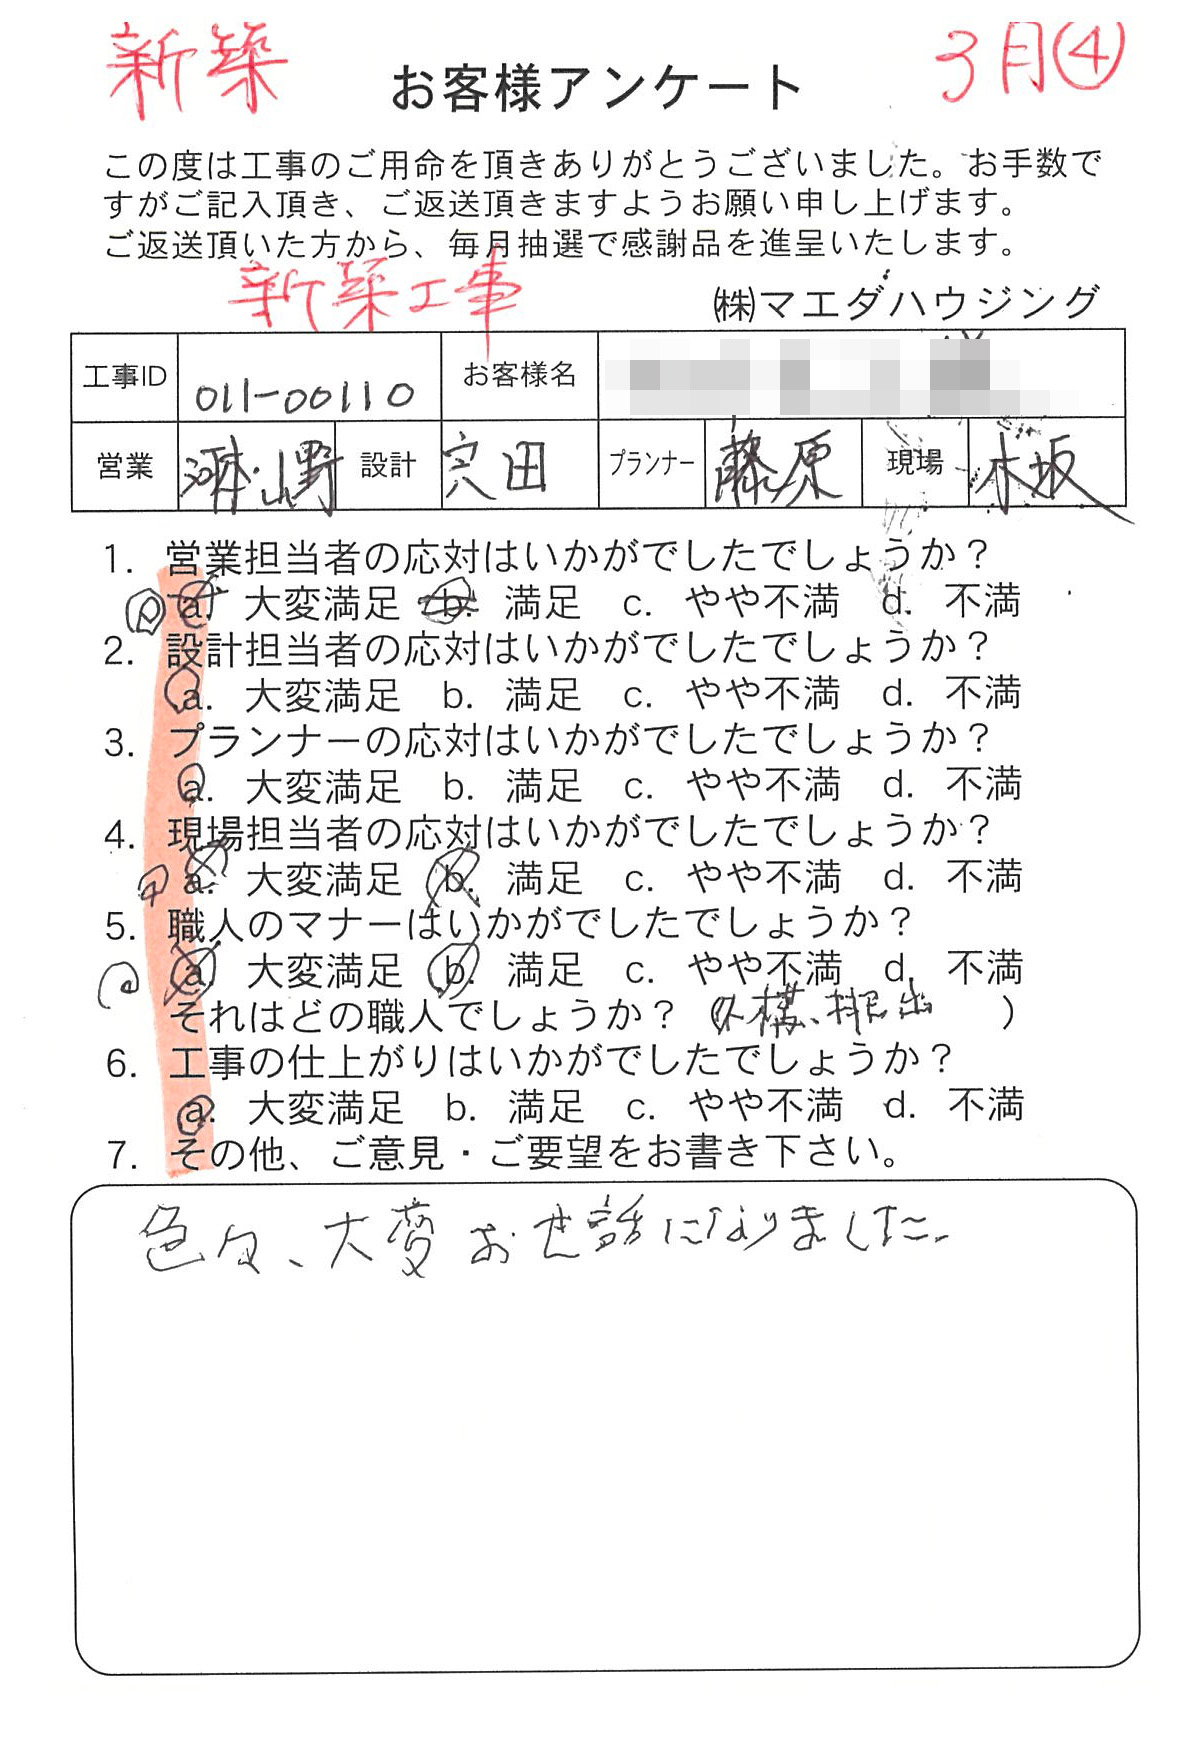 新築
3月④
お客様アンケート
この度は工事のご用命を頂きありがとうございました。お手数で
すがご記入頂き、ご返送頂きますようお願い申し上げます。
ご返送頂いた方から、毎月抽選で感謝品を進呈いたします。
新築工事
㈱マエダハウジング
工事ID 011-00110 お客様名
営業 山野 設計 宍田 プランナー 藤原 現場 木坂
1. 営業担当者の応対はいかがでしたでしょうか？
a. 大変満足 b. 満足 c. やや不満 d. 不満
2. 設計担当者の応対はいかがでしたでしょうか？
a. 大変満足 b. 満足 c. やや不満 d. 不満
3. プランナーの応対はいかがでしたでしょうか？
a. 大変満足 b. 満足 c. やや不満 d. 不満
4. 現場担当者の応対はいかがでしたでしょうか？
a. 大変満足 b. 満足 c. やや不満 d. 不満
5. 職人のマナーはいかがでしたでしょうか？
a 大変満足 b. 満足 c. やや不満 d. 不満
それはどの職人でしょうか？（外構、）
6. 工事の仕上がりはいかがでしたでしょうか？
a. 大変満足 b. 満足 c. やや不満 d. 不満
7. その他、ご意見・ご要望をお書き下さい。
色々、大変お世話になりました。